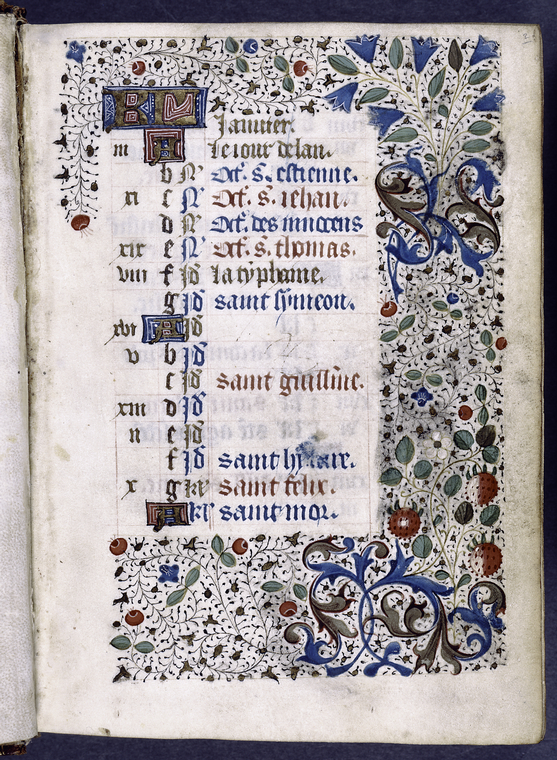 KL Januier.
iii A Le iour de lan.
b N Oct. s. estienne.
xi c N Oct. s. iehan.
d N Oct. des innocens
xix e N Oct. s. thomas.
viii f Id La typhaine.
g Id saint symeon.
xvi A Id
v b Id
c Id saint guillme.
xiii d Id
ii e Id
f Id saint hylaire.
x g saint felix.
A saint mor.